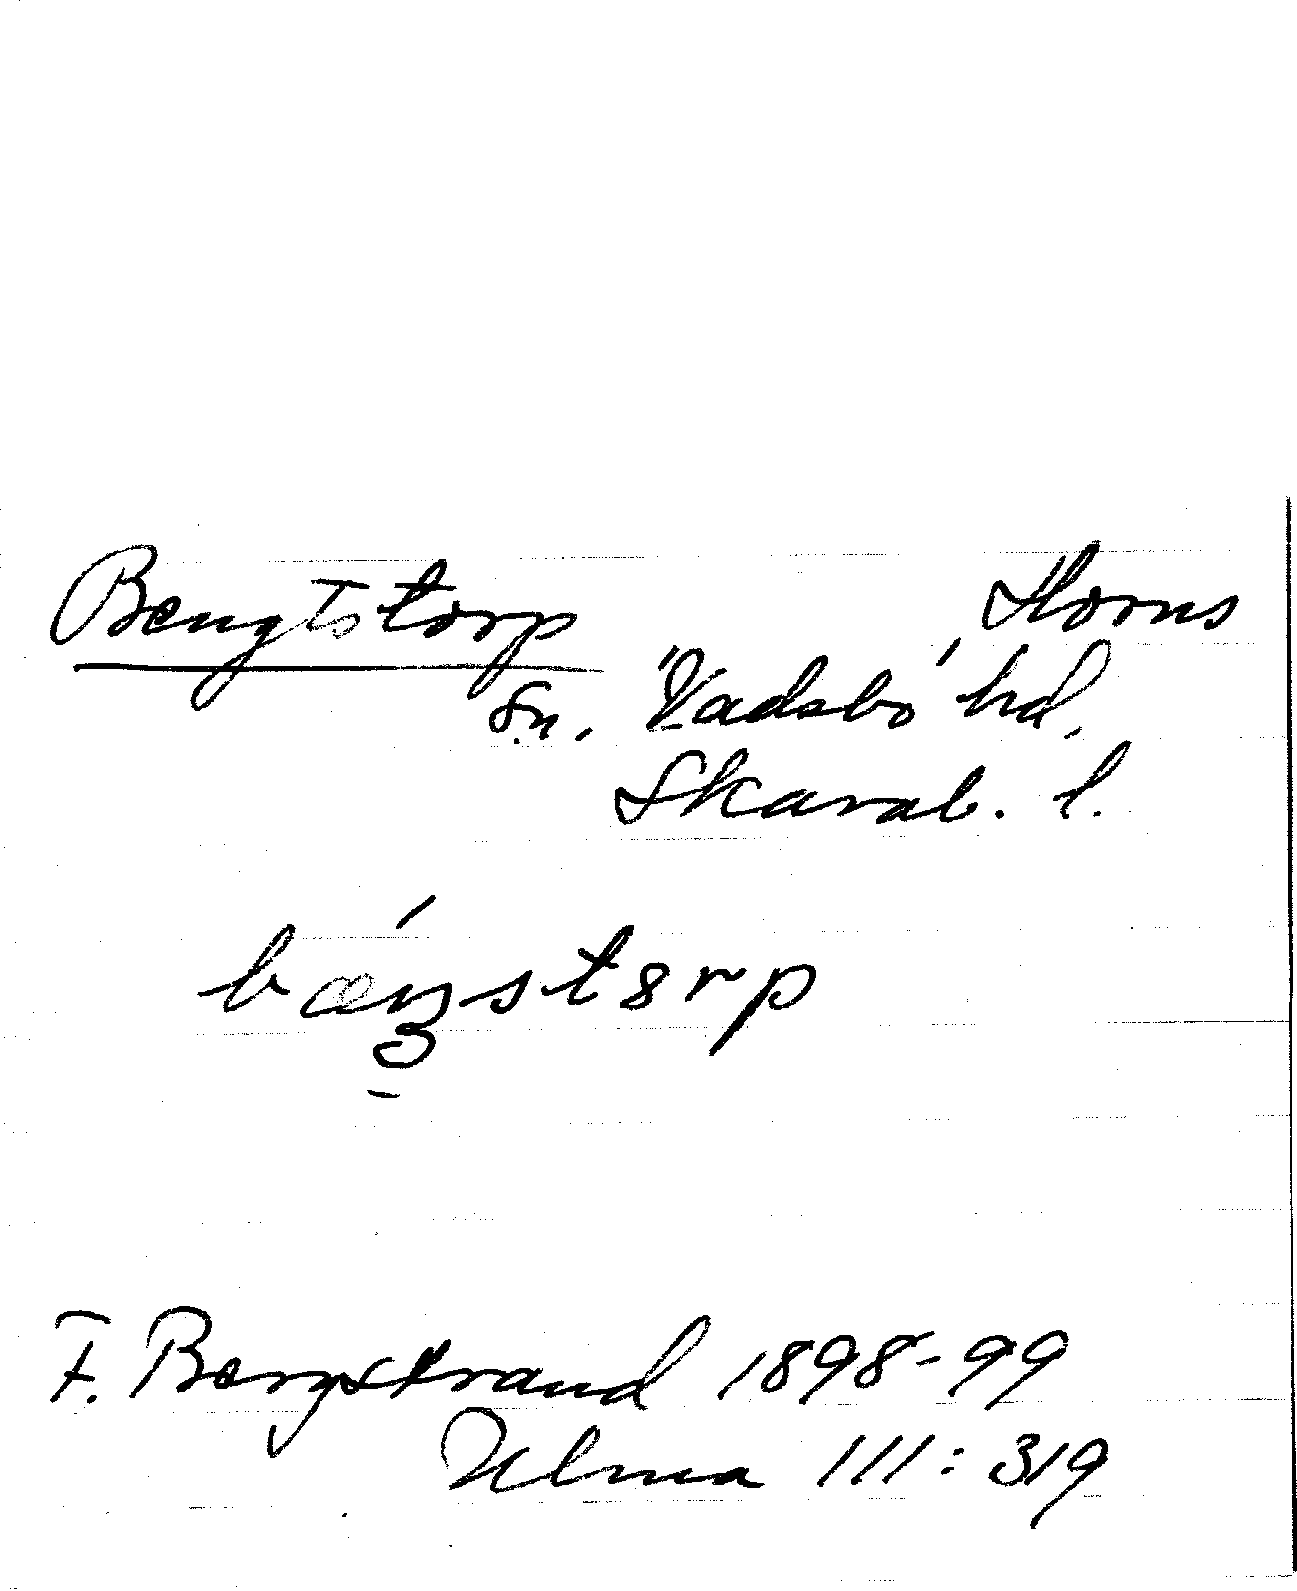 Bengtstorp Horns
Sn. Vadsbo hd.
Skarab. l.
bæŋstørp
F. Bergstrand 1898-99
Ulma 111:319